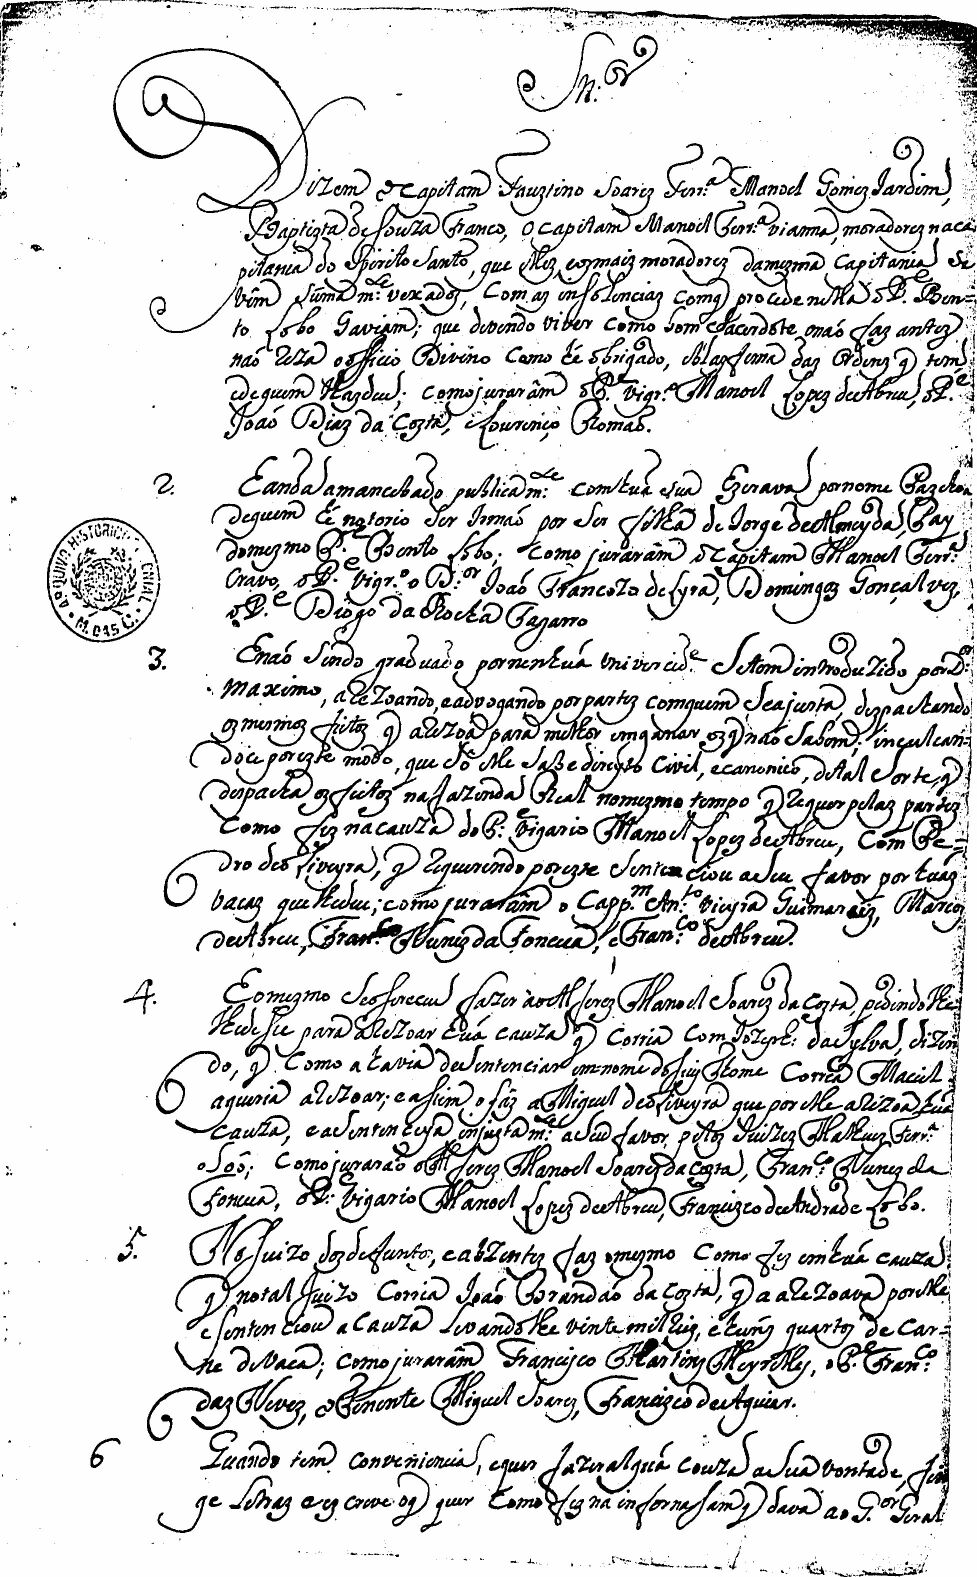 Sñ.or
Dizem o Capitam Fauztino Soarez Ferr.a Manoel Gomez Jardim,
Baptizta de Souza Franco, o Capitam Manoel Ferr.a vianna, moradorez na ca
pitania do Spirito Santo, que elles, eozmaiz moradorez damezma Capitania Se
vem Suma m.te vexadoz, Com az insolenciaz Com q̃ procede nella o P.e Ben=
to Lobo Gaviam; que devendo viver Como bom Sacerdote, onaõ faz antez
naõ reza o officio Divino Como hé obrigado, eblazfema daz Ordenz q̃ tem
edequem lhaz deu; Como juraram o P.e Vigr.o Manoel Lopez de Abreu, o P.e
Joaõ Diaz da Cozta, e Lourenço Romaõ.
2. E anda amancebado publicam.te Com huá Sua Ezcrava por nome
dequem hé notorio Ser Irmaõ por Ser filha de Jorge de Almeyda, Pay
domezmo P.e Bento Lobo; Como juraram o Capitam Manoel Ferr.a
Cravo, o P.e Vigr.o o D.or Joaõ Francozo de Lyra, Domingoz Gonçalvez,
o P.e Diogo da Rocha Pagarro
3. E naõ Sendo graduado por nenhuá Univercid.e Se tem introduzido por D.or
maximo, arezoando, eadvogando por partez comquem Seajunta, despachando
ozmezmoz feitoz q̃ arezoa para melhor emganar oz q̃ naõ Sabem; inculcan=
doce por ezte modo, que Só elle Sabe direyto Civil, e canonico, de tal Sorte, q̃
despacha oz feitoz na fazenda Real nomezmo tempo q̃ requer pelaz partez
Como fez na cauza do P.e Vigario Manoel Lopez de Abreu, Com Pe=
dro de oLiveyra, q̃ requerendo por ezte Sentenciou aSeu favor por huaz
vacaz que lhedeu; como juraram o Capp.m An.to Vieyra Guimaraez, Marcoz
de Abreu, Fran.co Nunez da Foncua, e Fran.co de Abreu.
4. E omezmo Seofereceu fazer ao Alferez Manoel Soarez da Cozta, pedindolhe
lhedesse para arezoar huá Cauza q̃ Corria Com Jozeph: da Sylva, dizen
do, q̃ Como ahavia deSentenciar emnome doJuiz Thome Correa Maciel
aqueria arezoar; e assim o faz a Miguel de oLiveyra que por elle arezoa hua
Cauza, e aSentenceya injuztam.te aSeu favor, peloz Juizez Matheuz Ferr.a
o Joó; Como juraraõ o Alferez Manoel Soarez da Cozta, Fran.co Nunez da
Foncua, o P.e Vigario Manoel Lopez de Abreu, Francizco de Andrade Lobo.
5. No Juizo dozdefuntoz, e abzentez faz omezmo Como fez em huá Cauza
q̃ no tal Juizo Corria Joaõ Brandaõ da Cozta, q̃ a arezoava por elle
e Sentenciou a Cauza Levandolhe vinte mil reiz, e hunz quartoz de Car=
ne de Vaca; Como juraram Francizco Martinz Meyrelles, o P.e Fran.co
daz Nevez, o Tenente Miguel Soarez, Francizco de Aguiar.
6 Quando tem Conveniencia, e quer fazer alguá Couza aSua vontade, fin
ge Letraz e ezcreve o q̃ quer Como fez na informassam q̃ dava ao G.or Geral
ARQUIVO HISTORICO COLONIAL